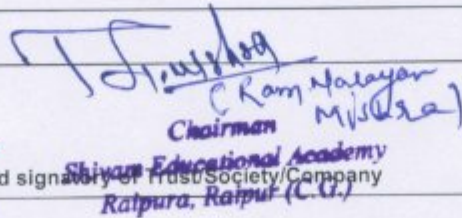 (Ram Narayan
Mishra)
Chairman
Shivam Educational Academy
d signatory of Trust/Society/Company
Raipura, Raipur (C.G.)